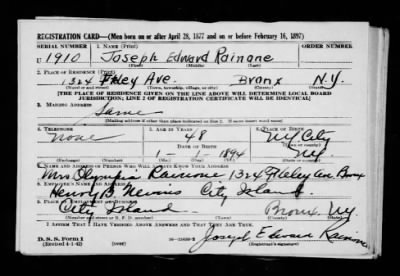 REGISTRATION CARD—(Men born on or after April 28, 1877 and on or before February 16, 1897)
SERIAL NUMBER 1. NAME (Print) ORDER NUMBER
U 1910 Joseph Edward Rainone
(First) (Middle) (Last)
2. PLACE OF RESIDENCE (Print)
1324 Ave. Bronx N.Y.
(Number and street) (Town, township, village, or city) (County) (State)
[THE PLACE OF RESIDENCE GIVEN ON THE LINE ABOVE WILL DETERMINE LOCAL BOARD
JURISDICTION; LINE 2 OF REGISTRATION CERTIFICATE WILL BE IDENTICAL]
3. MAILING ADDRESS
Same
(Mailing address if other than place indicated on line 2. If same insert word same)
4. TELEPHONE 5. AGE IN YEARS 6. PLACE OF BIRTH
None 48 NY City
DATE OF BIRTH (Town or county)
1 - 1 - 1894 N.Y.
(Exchange) (Number) (Mo.) (Day) (Yr.) (State or country)
7. NAME AND ADDRESS OF PERSON WHO WILL ALWAYS KNOW YOUR ADDRESS
Mrs Olympia Rainone 1324 Ave. Bronx
8. EMPLOYER'S NAME AND ADDRESS
Henry B. Nevins City Island
9. PLACE OF EMPLOYMENT OR BUSINESS
City Island Bronx NY
(Number and street or R. F. D. number) (Town) (County) (State)
I AFFIRM THAT I HAVE VERIFIED ABOVE ANSWERS AND THAT THEY ARE TRUE.
D. S. S. Form 1
(Revised 4-1-42) (over) Joseph Edward Rainone
(Registrant's signature)